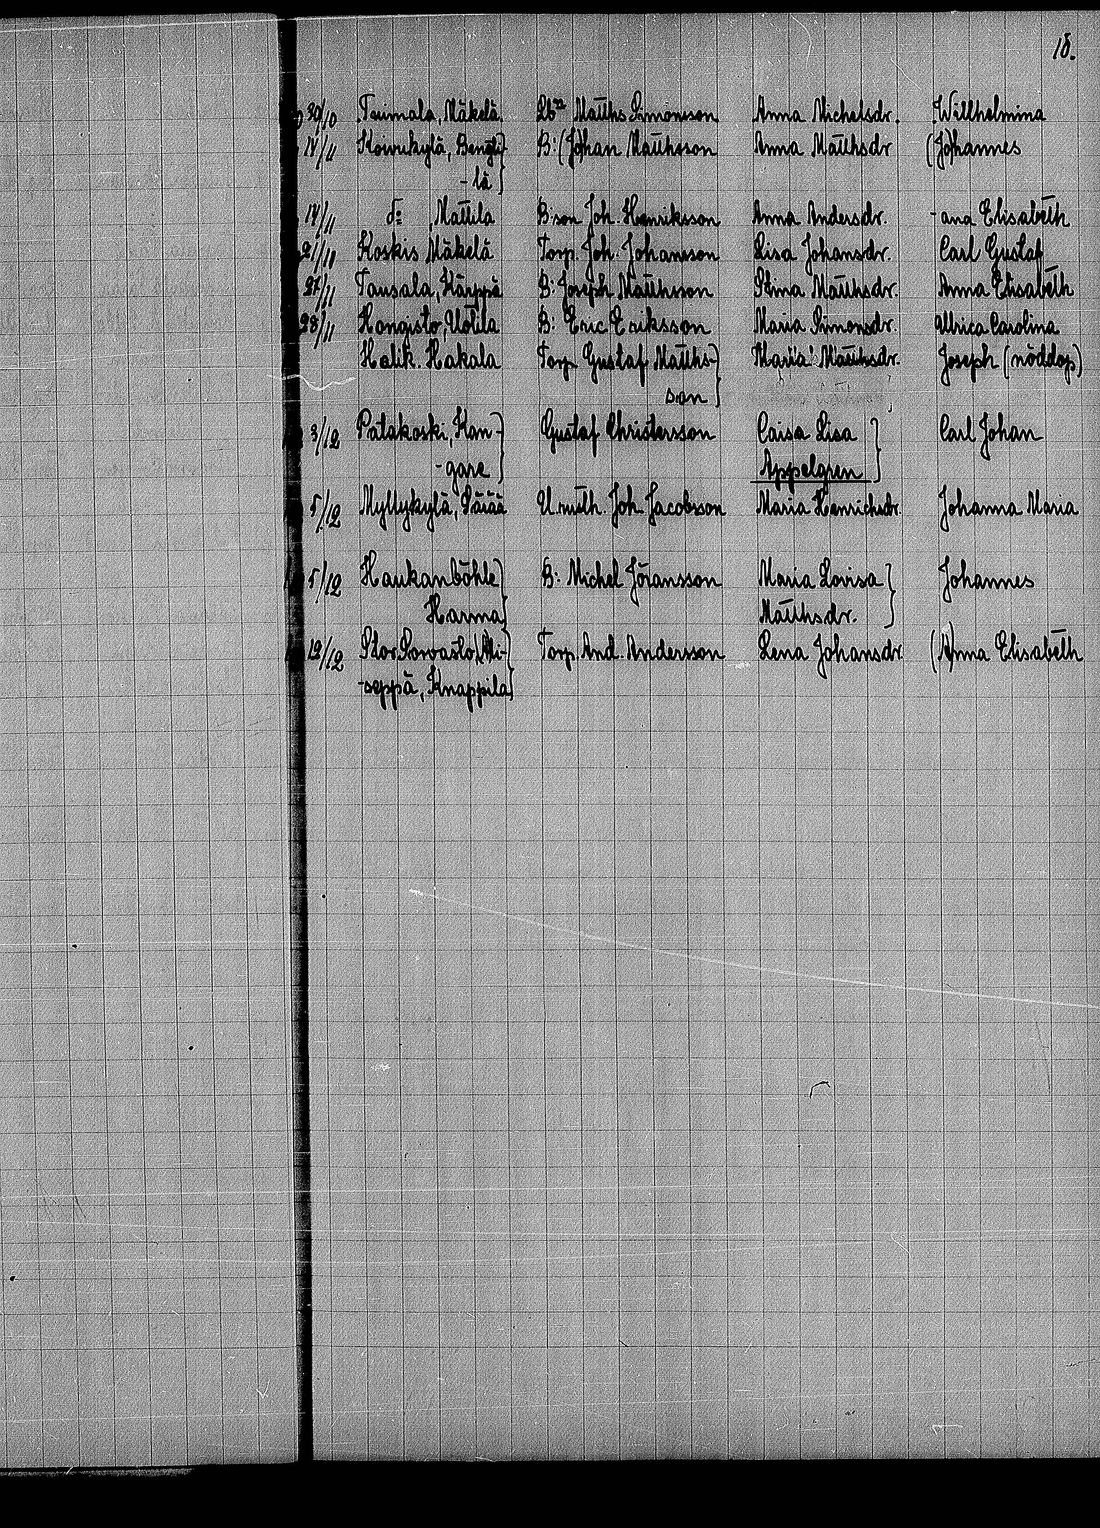 18.
30/10 Tuimala, Mäkelä. Lbn Matths Simonsson Anna Michelsdr. Willhelmina
14/11 Koivukylä, Bengti- B: (Jo)han Matthsson Anna Matthsdr (Jo)hannes
-lä
14/11 d:o , Mattila B:son Joh. Henriksson Anna Andersdr. -ana Elisabeth
21/11 Koskis Mäkelä Torp. Joh. Johansson Lisa Johansdr. Carl Gustaf
27/11 Tausala, Kärppä B: Joseph Matthsson Stina Matthsdr. Anna Elisabeth
28/11 Hongisto, Uotila B: Eric Eriksson Maria Simonsdr. Ulrica Carolina
Halik. Hakala Torp Gustaf Matths- Maria Matthsdr. Joseph (nöddop)
son
3/12 Patakoski, Kan- Gustaf Christersson Caisa Lisa Carl Johan
-gare Appelgren
5/12 Myllykylä, Pärää U. ruth. Joh. Jacobsson Maria Henrichsdr. Johanna Maria
5/12 Haukanböhle B: Michel Jöransson Maria Lovisa Johannes
Harma Matthsdr.
12/12 Stor Torp. And. Andersson Lena Johansdr. (A)nna Elisabeth
-seppä, Knappila